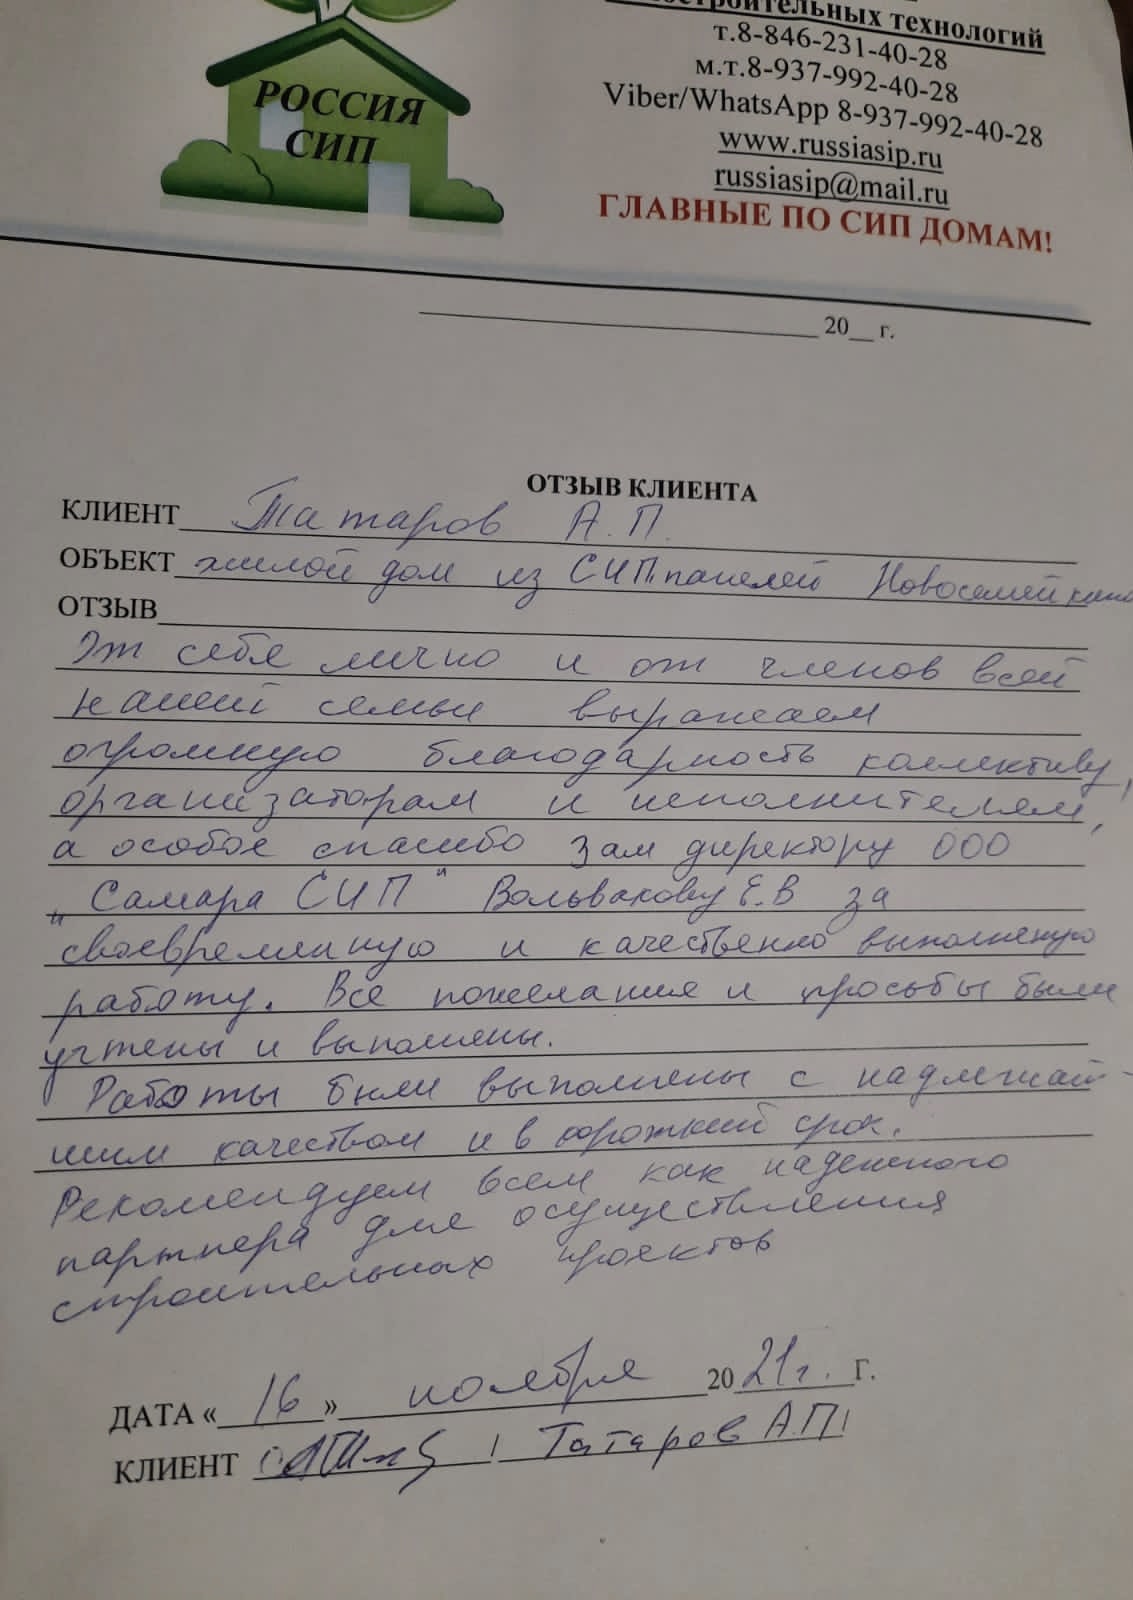 строительных технологий
т.8-846-231-40-28
м.т.8-937-992-40-28
Viber/WhatsApp 8-937-992-40-28
www.russiasip.ru
russiasip@mail.ru
ГЛАВНЫЕ ПО СИП ДОМАМ!
РОССИЯ
СИП
20__ г.
ОТЗЫВ КЛИЕНТА
КЛИЕНТ Татаров А.П.
ОБЪЕКТ жилой дом из СИП панелей Новосемейкино
ОТЗЫВ
От себя лично и от членов всей
нашей семьи выражаем
огромную благодарность коллективу,
организаторам и исполнителям,
а особое спасибо зам директору ООО
"Самара СИП" Вольвакову Е.В за
своевременную и качественно выполненую
работу. Все пожелания и просьбы были
учтены и выполнены.
Работы были выполнены с надлежай-
шим качеством и в срок.
Рекомендуем всем как надежного
партнера для осуществления
строительных проектов
ДАТА «16» ноября 2021г. Г.
КЛИЕНТ / Татаров А.П/